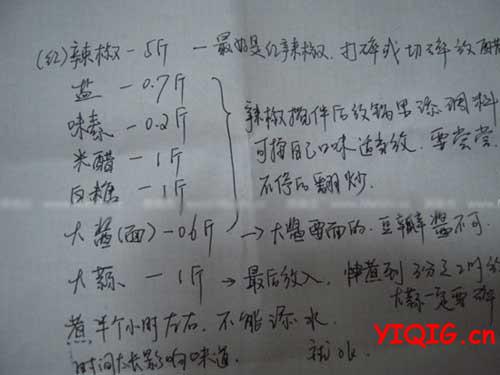 (红)辣椒-5斤 - 最好是红辣椒.打碎或切碎放醋
盐-0.7斤
味素-0.2斤
米醋-1斤
白糖-1斤
大酱(面)-0.6斤
大蒜 -1斤
辣椒搅伴后放锅里添调料
可按自己口味适务放.要尝尝
不停的翻炒.
→大酱要面的.豆瓣酱不可.
→最后放入.
大蒜一定要碎
煮半个小时左右.不能添水.
时间太长影响味道. 就ok.
YIQIG.cn